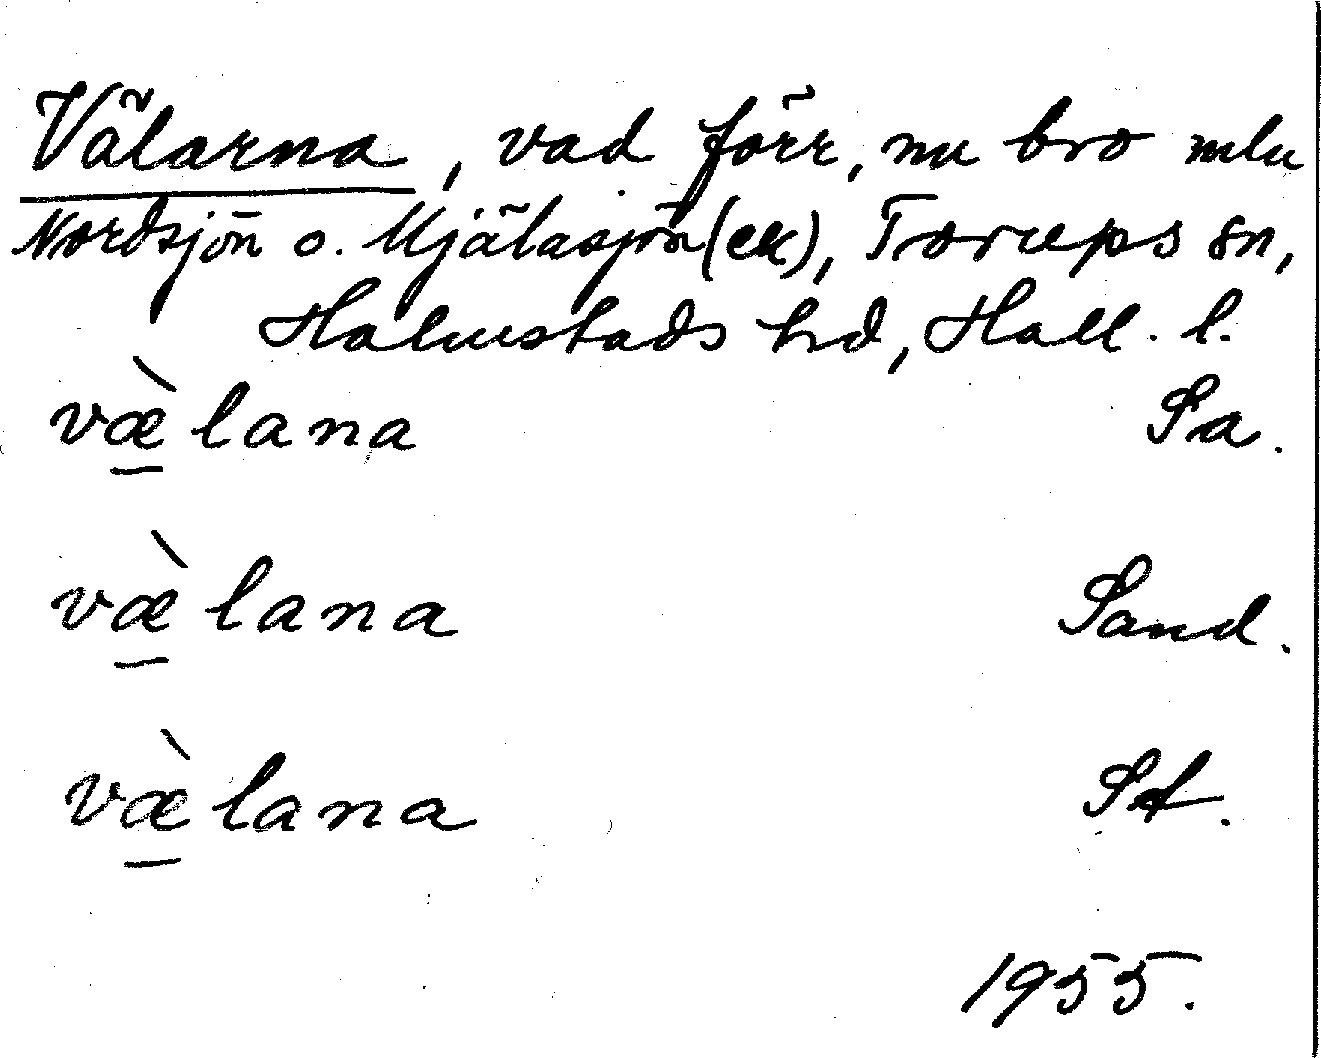 Välarna, vad förr, nu bro mlu
Nordsjön o. Kjälasjön (ek), Torups sn,
Halmstads hd, Hall. l.
væ̀lana Sa.
væ̀lana Sand.
væ̀lana St.
1955.